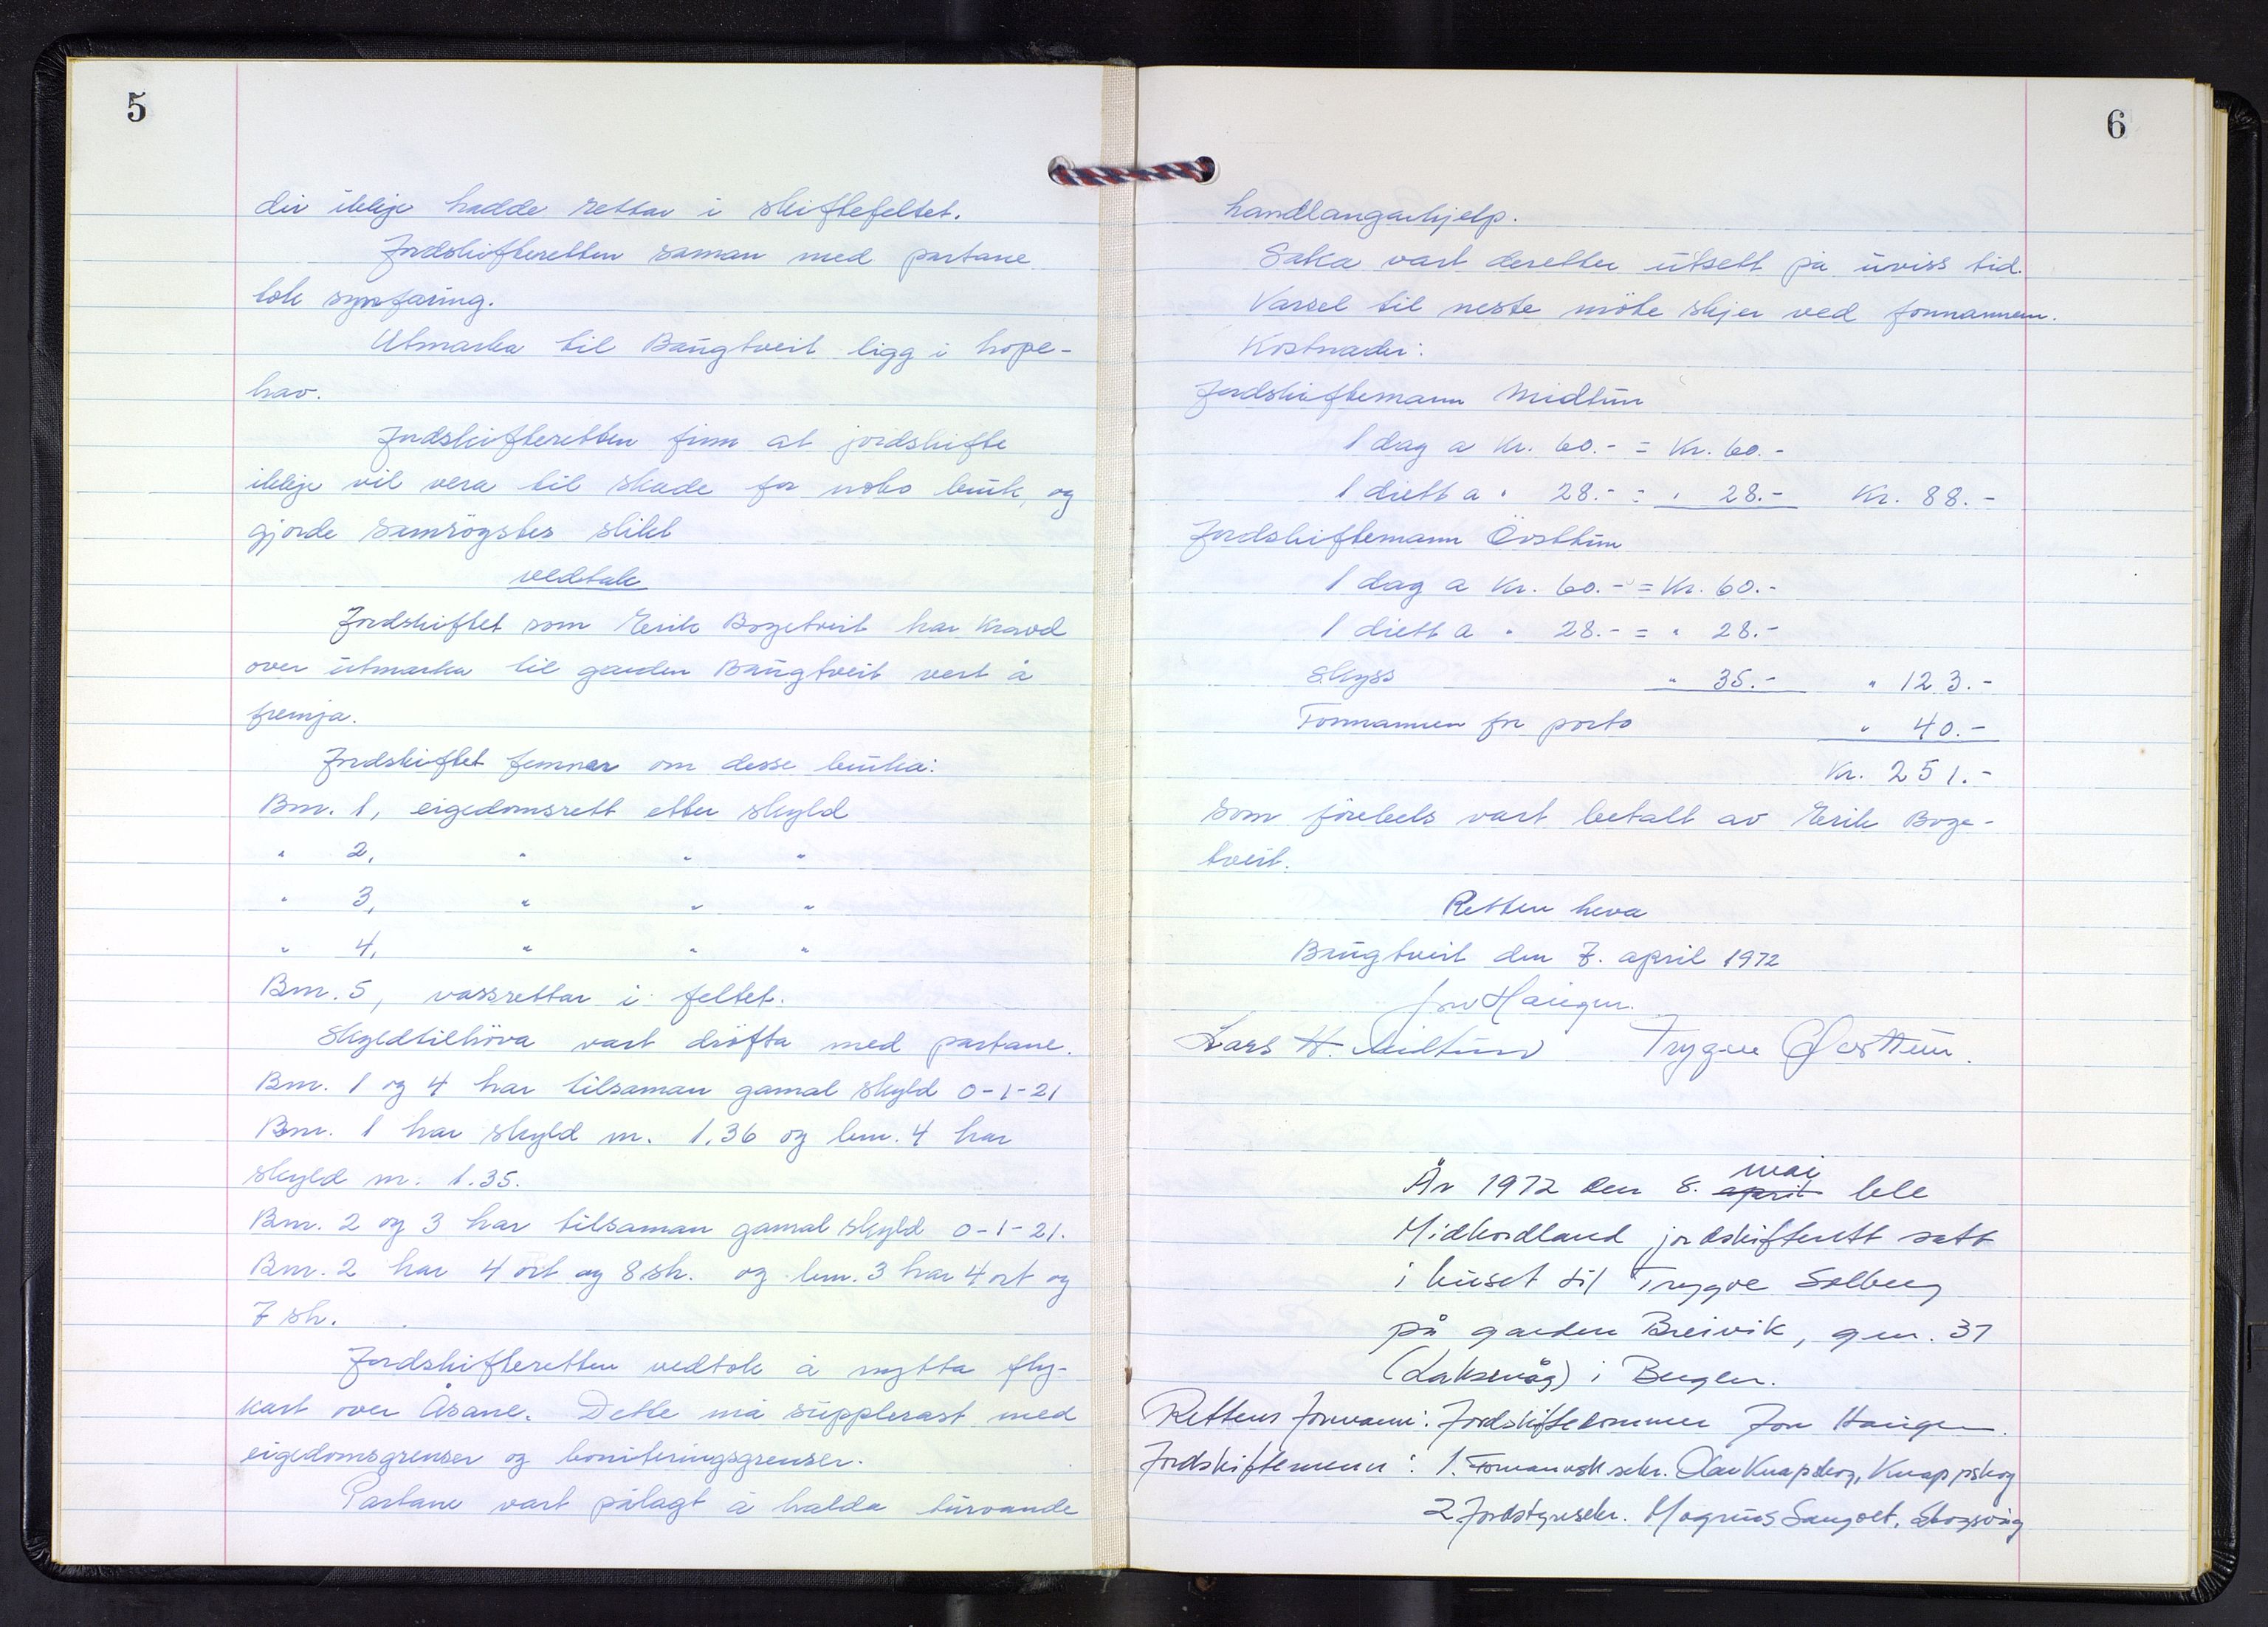 5
dei ikkje hadde rettar i skiftefeltet.
Jordskifteretten saman med partane
tok synfaring.
Utmarka til Baugtveit ligg i hope-
hav.
Jordskifteretten finn at jordskifte
ikkje vil vera til skade for noko bruk, og
gjorde samrøystes slikt
vedtak
Jordskiftet som Erik Bogetveit har kravd
over utmarka til garden Baugtveit vert å
fremja.
Jordskiftet femner om desse bruka:
Bnr. 1, eigedomsrett etter skyld
" 2, " " "
" 3, " " "
" 4, " " "
Bnr. 5, vassrettar i feltet.
Skyldtilhöva vart dröfta med partane.
Bnr. 1 og 4 har tilsaman gamal skyld 0-1-21
Bnr. 1 har skyld m. 1.36 og bnr. 4 har
skyld m. 1.35.
Bnr. 2 og 3 har tilsaman gamal skyld 0-1-21.
Bnr. 2 har 4 ort og 8 sk. og bnr. 3 har 4 ort og
7 sk.
Jordskifteretten vedtok å nytta fly-
kart over Åsane. Dette må supplerast med
eigedomsgrenser og boniteringsgrenser.
Partane vart pålagt å halda turvande
6
handlangarhjelp.
Saka vart deretter utsett på uviss tid.
Varsel til neste möte skjer ved formannen.
Kostnader:
Jordskiftemann Midttun
1 dag a kr. 60.- = kr. 60.-
1 diett a " 28.- = " 28.- kr. 88.-
Jordskiftemann Övsttun
1 dag a kr. 60.- = kr. 60.-
1 diett a " 28.- = " 28.-
Skyss " 35.- " 123.-
Formannen for porto " 40.-
Kr. 251.-
som förebels vart betalt av Erik Boge-
tveit.
Retten heva
Baugtveit den 7. april 1972
Jon Haugen.
Lars H. Midttun Trygve Øvsttun.
År 1972 den 8. april mai ble
Midhordland jordskifterett satt
i huset til Trygve Solberg
på garden Breivik, gnr. 37
(Laksevåg) i Bergen.
Rettens formann: Jordskiftedommer Jon Haugen.
Jordskiftemenn: 1. Olav Knapskog, Knappskog
2 Jordstyresekr. Magnus Sangolt, Skogsvåg